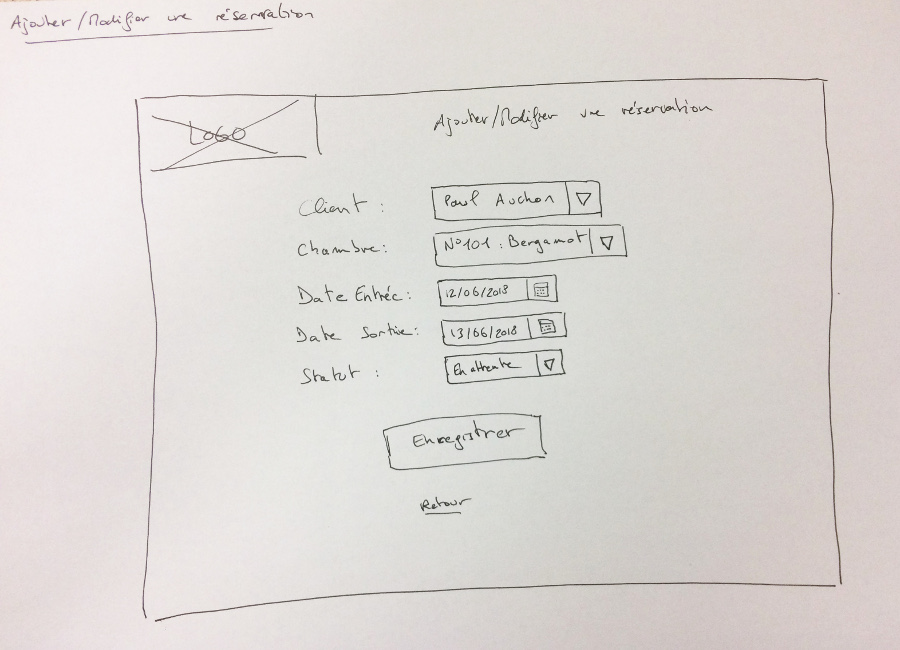 Ajouter/Modifier une réservation
LOGO
Ajouter/Modifier une réservation
Client :
Paul Auchon
Chambre:
N°101 : Bergamot
Date Entrée:
12/06/2018
Date Sortie:
13/06/2018
Statut :
En attente
Enregistrer
Retour